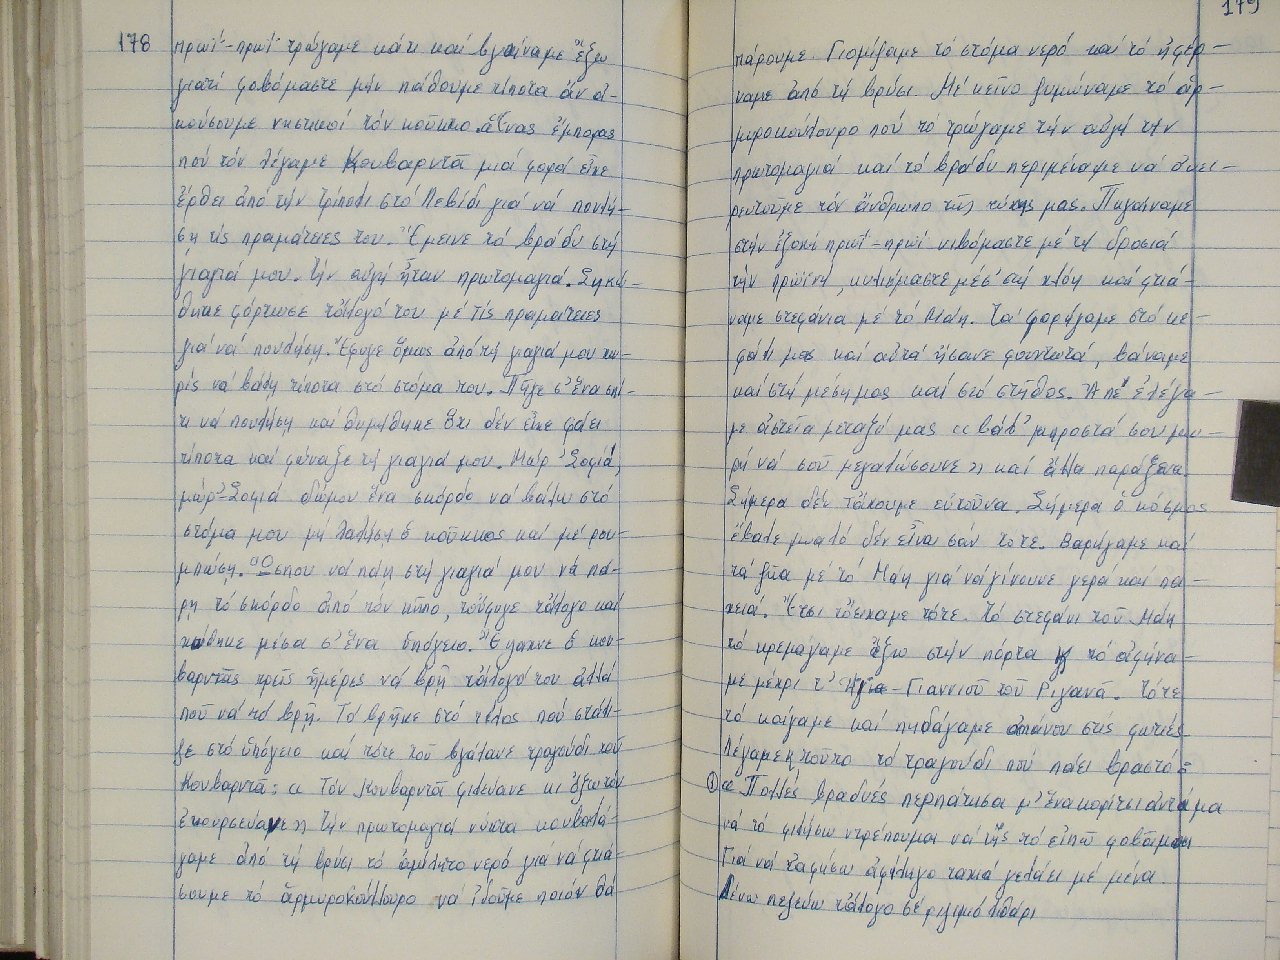 178
πρωΐ-πρωΐ τρώγαμε κάτι καί βγαίναμε ἔξω
γιατί φοβόμαστε μήν πάθουμε τίποτα ἄν ἀ-
κούσουμε νηστικοί τόν κοῦκκο. Ἕνας ἔμπορας
πού τόν λέγαμε Κουβαρντᾶ μιά φορά εἶχε
ἔρθει ἀπό τήν Τρίπολι στό Λεβίδι γιά νά πουλή-
ση τίς πραμάτειες του. Ἔμεινε τό βράδυ στή
γιαγιά μου. Τήν αὐγή ἦταν πρωτομαγιά. Σηκώ-
θηκε φόρτωσε τἄλογό του μέ τίς πραμάτειες
γιά νά πουλήση. Ἔφυγε ὅμως ἀπό τή γιαγιά μου χω-
ρίς νά βάλη τίποτα στό στόμα του. Πῆγε σ' ἕνα σπί-
τι νά πουλήση καί θυμήθηκε ὅτι δέν εἶχε φάει
τίποτα καί φώναξε τή γιαγιά μου. Μάρ' Σοφιά,
μάρ' Σοφιά δόμου ἕνα σκόρδο νά βάλω στό
στόμα μου μή λαλήση ὁ κοῦκκος καί μέ ρου-
μπώση. Ὅσπου νά πάη στή γιαγιά μου νά πά-
ρη τό σκόρδο ἀπό τόν κῆπο, τοὔφυγε τἄλογο καί
χώθηκε μέσα σ' ἕνα ὑπόγειο. Ἔψαχνε ὁ Κου-
βαρντᾶς τρεῖς ἡμέρες νά βρῆ τἄλογό του ἀλλά
ποῦ νά τό βρῆ. Τό βρῆκε στό τέλος πού στάλι-
ζε στό ὑπόγειο καί τότε τοῦ βγάλανε τραγούδι τοῦ
Κουβαρντᾶ: « Τόν Κουβαρντᾶ φιλεύανε κι ὄξω τόν
ἐκουρσεύανε» Τήν πρωτομαγιά νύχτα κουβαλά-
γαμε ἀπό τή βρύσι τό ἀμίλητο νερό γιά νά φτιά-
σουμε τό ἁρμυροκούλουρο νά ἰδοῦμε ποιόν θά
179
πάρουμε. Γιομίζαμε τό στόμα νερό καί τό ἠφέρ-
ναμε ἀπό τή βρύσι. Μέ κεῖνο ζυμώναμε τό ἁρ-
μυροκούλουρο πού τό τρώγαμε τήν αὐγή τήν
πρωτομαγιά καί τό βράδυ περιμέναμε νά ὀνει-
ρευτοῦμε τόν ἄνθρωπο τῆς τύχης μας. Πηγαίναμε
στήν ἐξοχή πρωΐ-πρωΐ νιβόμαστε μέ τή δροσιά
τήν πρωϊνή, κυλιόμαστε μέσ' στή χλόη καί φτιά-
ναμε στεφάνια μέ τό Μάη. Τά φοράγαμε στό κε-
φάλι μας καί αὐτά ἤσανε φουντωτά, βάναμε
καί στή μέση μας καί στό στῆθος. Ἀπέ ἐλέγα-
με ἀστεῖα μεταξύ μας «βάλ' μπροστά σου μω-
ρή νά σοῦ μεγαλώσουνε» καί ἄλλα παράξενα
Σήμερα δέν τἄχουμε εὐτοῦνα. Σήμερα ὁ κόσμος
ἔβαλε μυαλό δέν εἶναι σάν τότε. Βαράγαμε καί
τά ζῶα μέ τό Μάη γιά νά γίνουνε γερά καί πα-
χειά. Ἔτσι τὄχαμε τότε. Τό στεφάνι τοῦ Μάη
τό κρεμάγαμε ἔξω στήν πόρτα κ τό ἀφήνα-
με μέχρι τ' Ἅγια-Γιαννιοῦ τοῦ Ριγανᾶ. Τότε
τό καίγαμε καί πηδάγαμε ἀπάνου στίς φωτιές
λέγαμε κ τοῦτο τό τραγούδι πού πάει βραστό:
① « Πολλές βραδυές περπάτησα μ' ἕνα κορίτσι ἀντάμα
νά τό φιλήσω ντρέπουμαι νά τῆς τό εἰπῶ φοβᾶμαι
Γιά νά τ' ἀφήσω ἀφίλητο ταχιά γελάει μέ μένα
Δένω πεζεύω τἄλογο σέ ριζιμό λιθάρι